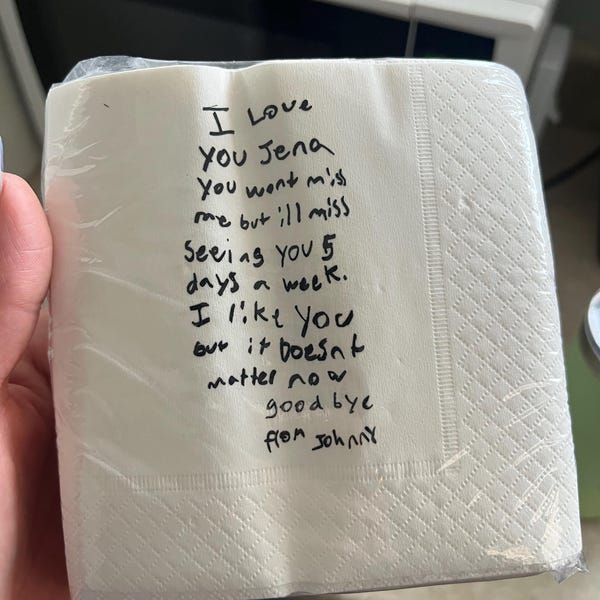 I Love
you Jena
you wont miss
me but ill miss
seeing you 5
days a week.
I like you
but it Doesnt
matter now
goodbye
from Johnny